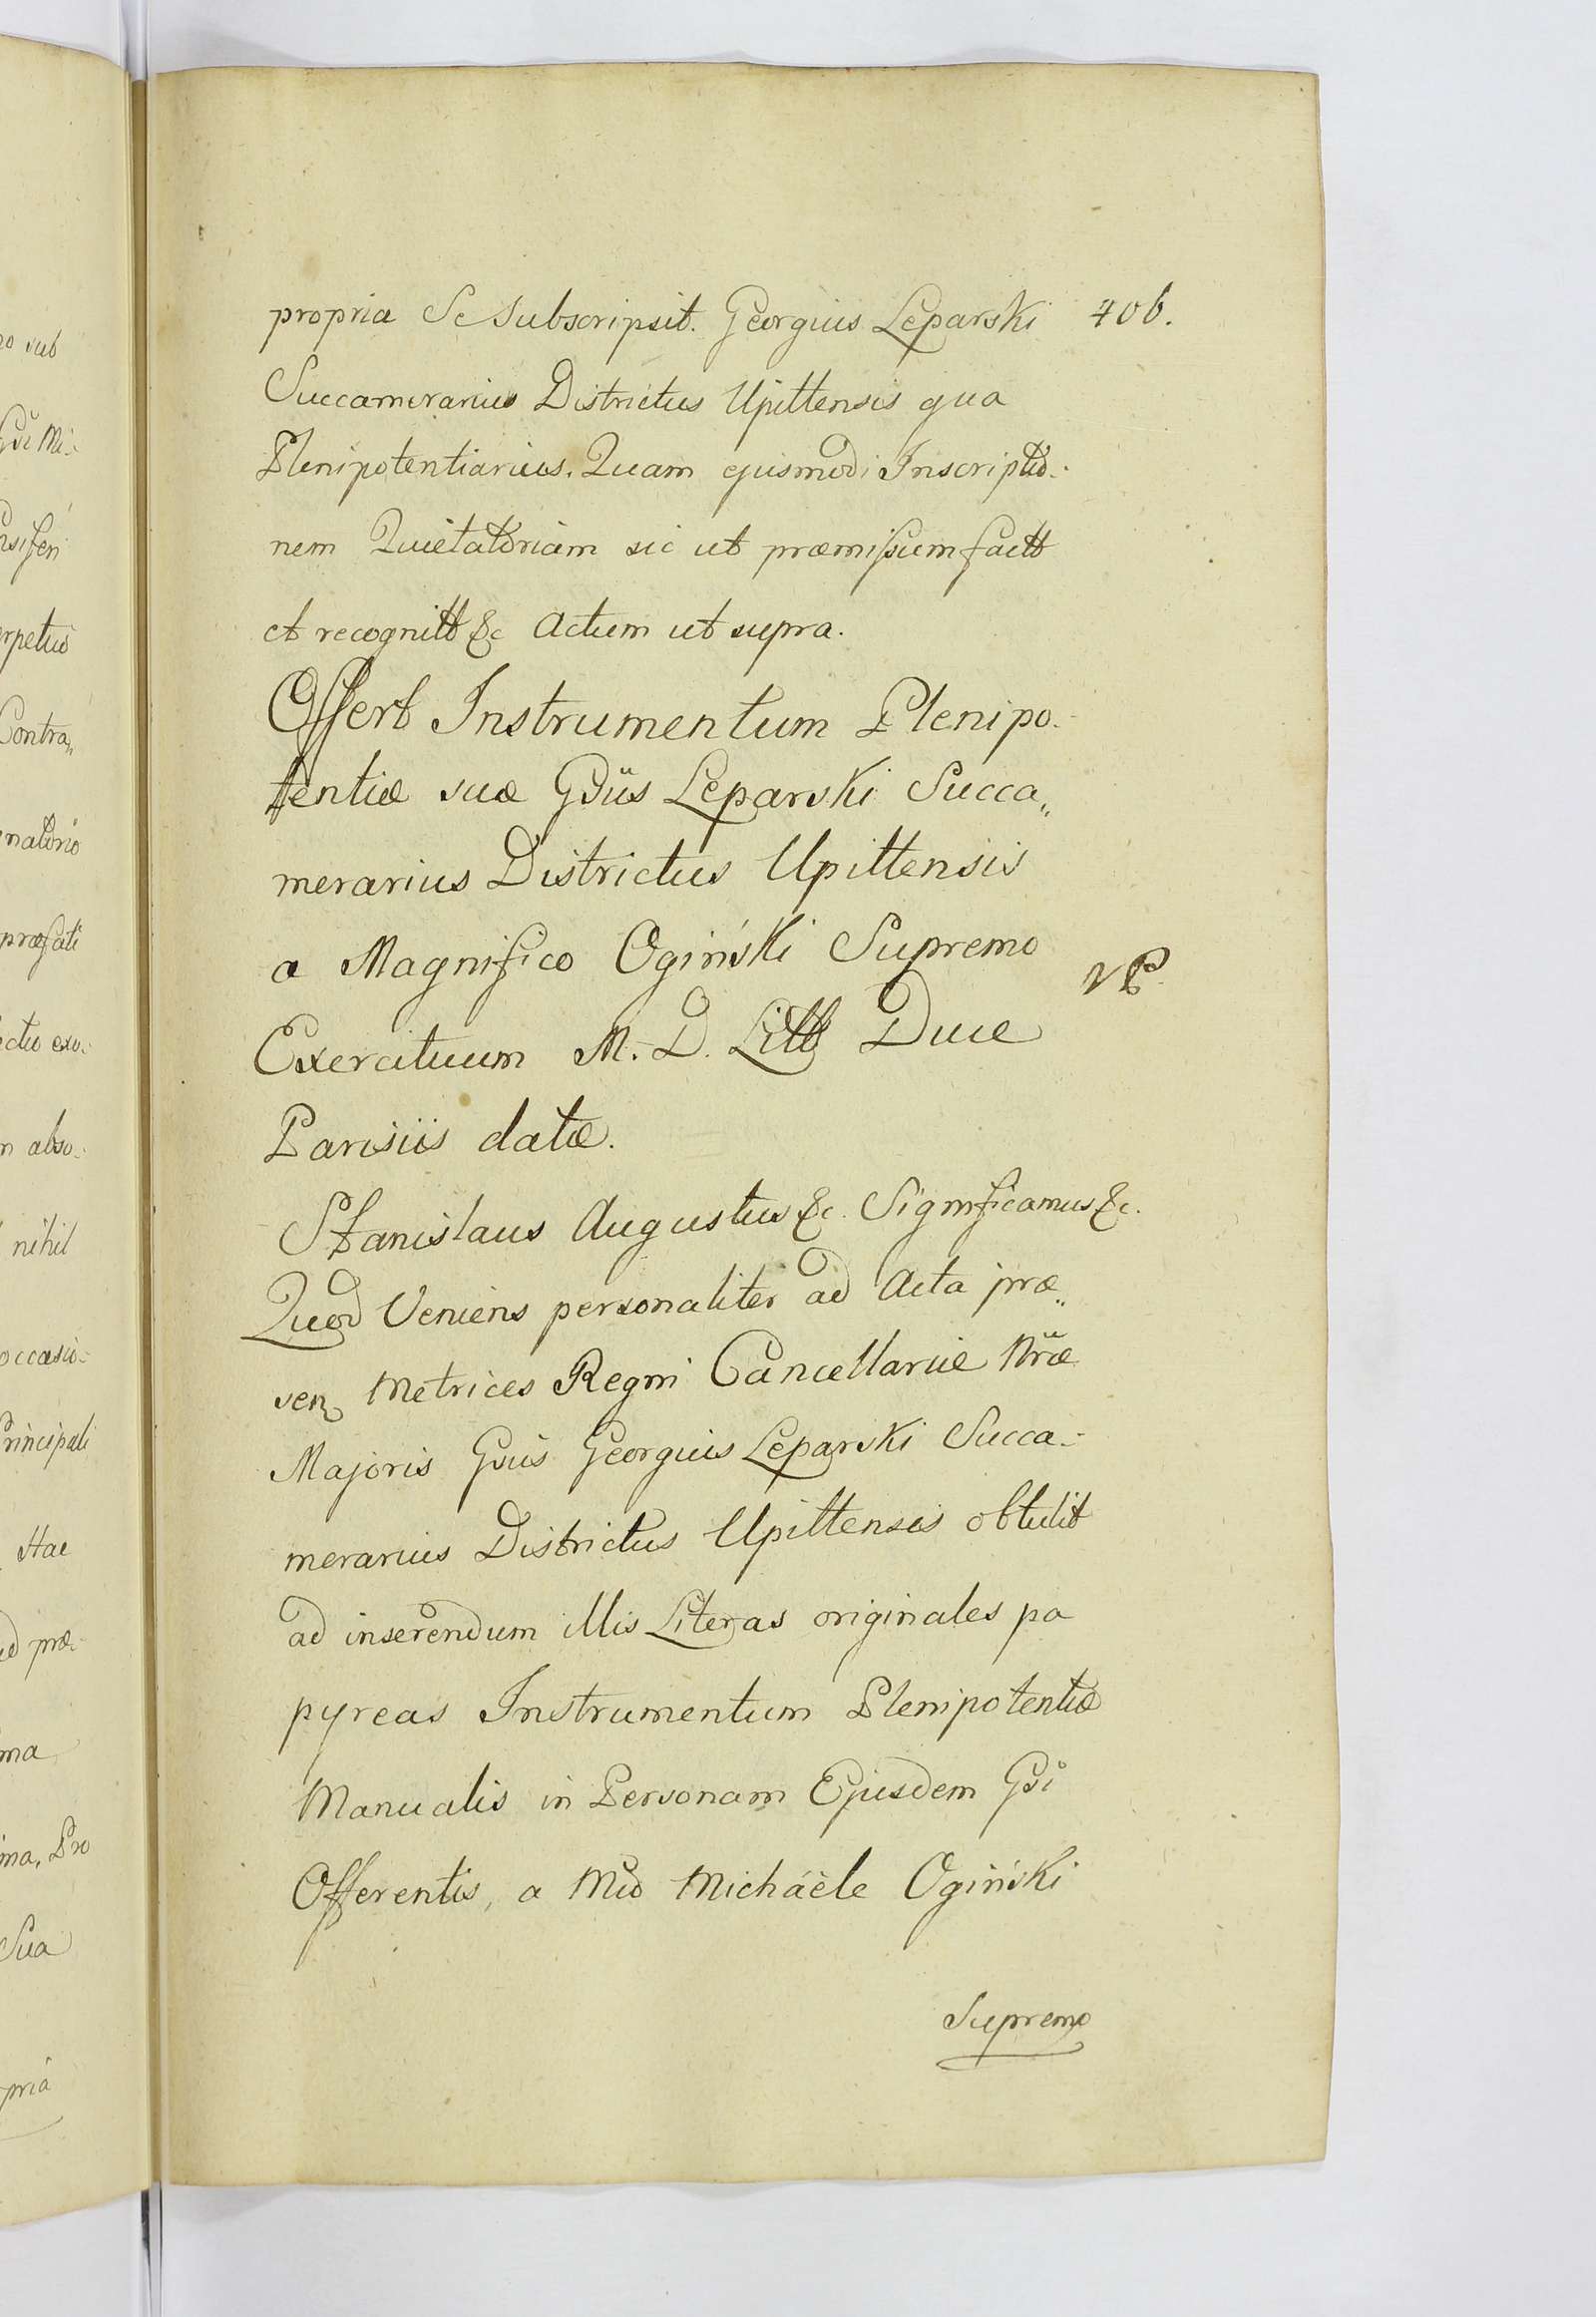 propria Se Subscripsit. Georgius Leparski 406.
Succamerarius Districtus Upittensis qua
Plenipotentiarius. Quam ejusmodi Inscriptio-
nem Quietatoriam sic ut præmissum factt
et recognitt &c Actum ut supra.
Offert Instrumentum Plenipo-
tentiæ suæ Gsus Leparski Succa„
merarius Districtus Upittensis
a Magnifico Ogiński Supremo
Exercituum M. D. Litt Duce
Parisiis datæ.
Stanislaus Augustus &c. Significamus &c.
Quod Veniens personaliter ad Acta præ„
sen Metrices Regni Cancellariæ Nræ
Majoris Gsus Georgius Leparski Succa-
merarius Districtus Upittensis obtulit
ad inserendum illis Literas originales pa
pyreas Instrumentum Plenipotentiæ
Manualis in Personam Ejusdem Gsi
Offerentis, a Mco Michaële Ogiński
Supremo
no sub
Gsi Mi-
erpetuo
Contra„
præfati
ctu exo-
m abso-
nihil
occasio-
Principali
Hac
ed præ-
ma
ima. Pro
Sua
pria